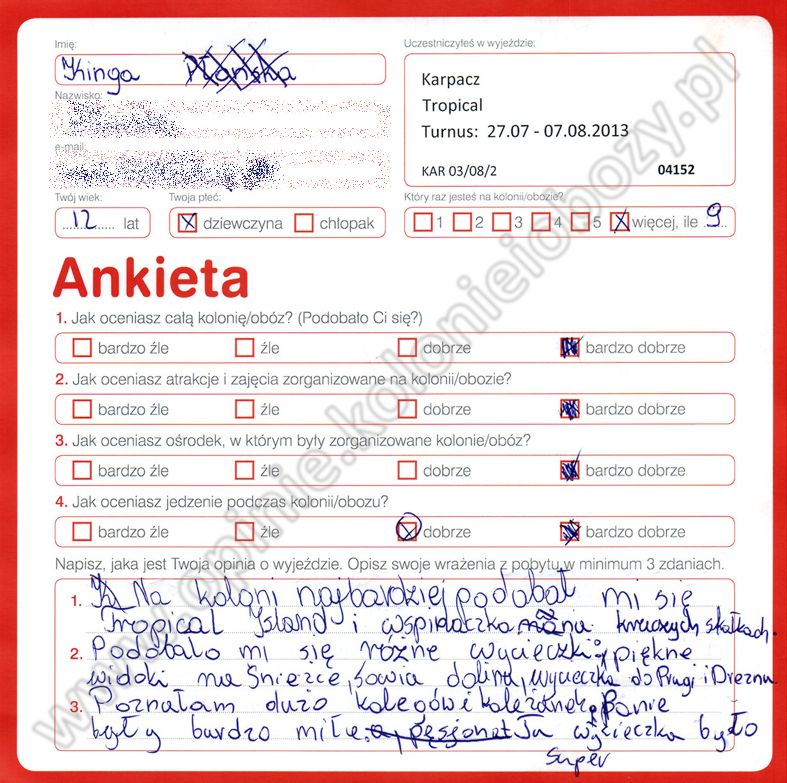 Imię:
Kinga
Uczestniczyłeś w wyjeździe:
Karpacz
Tropical
Turnus: 27.07 - 07.08.2013
KAR 03/08/2 04152
Nazwisko:
e-mail:
Twój wiek: Twoja płeć: Który raz jesteś na kolonii/obozie?
12 lat dziewczyna chłopak 1 2 3 4 5 więcej, ile 9
Ankieta
1. Jak oceniasz całą kolonię/obóz? (Podobało Ci się?)
bardzo źle źle dobrze bardzo dobrze
2. Jak oceniasz atrakcje i zajęcia zorganizowane na kolonii/obozie?
bardzo źle źle dobrze bardzo dobrze
3. Jak oceniasz ośrodek, w którym były zorganizowane kolonie/obóz?
bardzo źle źle dobrze bardzo dobrze
4. Jak oceniasz jedzenie podczas kolonii/obozu?
bardzo źle źle dobrze bardzo dobrze
Napisz, jaka jest Twoja opinia o wyjeździe. Opisz swoje wrażenia z pobytu w minimum 3 zdaniach.
1. Na koloni najbardziej podobał mi się
Tropical Island i wspinaczka na kruczych skałkach.
2. Podobało mi się różne wycieczki, piękne
widoki na Śnieżce, sowia dolina, wycieczka do Pragi i Drezna.
3. Poznałam dużo kolegów i koleżanek. Panie
były bardzo miłe. Ta wycieczka było
super
www.opinie.kolonieiobozy.pl